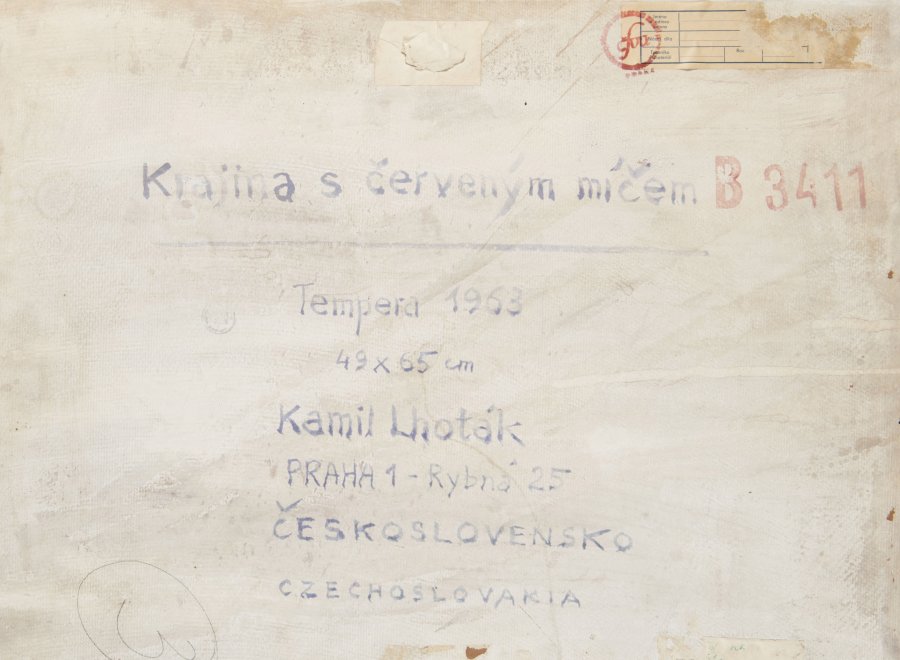 Krajina s červeným míčem B 3411
Tempera 1963
49 x 65 cm
Kamil Lhoták
PRAHA 1 - Rybná 25
ČESKOSLOVENSKO
CZECHOSLOVAKIA
3